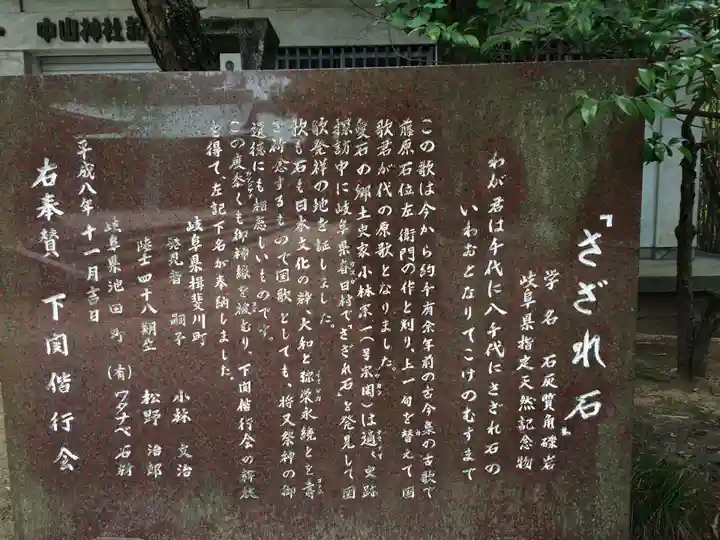 中山神社
『さざれ石』
学名 石灰質角礫岩
岐阜県指定天然記念物
わが君は千代に八千代にさざれ石の
いわおとなりてこけのむすまで
この歌は今から約千有余年前の古今集の古歌で
藤原石位左衛門の作と判り、上一句を替えて国
歌君が代の原歌となりました。
愛石の郷土史家小林宗一(号宗閑)は遍く史跡
探訪中に岐阜県春日村で『さざれ石』を発見して国
歌発祥の地を証しました。
歌も石も日本文化の粋、大和と弥栄永続とを寿
ぎ祈念するもので国歌としても、将又祭神の御
遺徳にも相応しいものです。
この度忝くも御神縁を被むり、下関偕行会の
を得て左記下名が奉納しました。
岐阜県揖斐川町
発見者 嗣子 小林 文治
陸士四十八期生 松野 治郎
岐阜県池田町 (有)ワタナベ石材
平成八年十一月吉日
右奉賛 下関偕行会